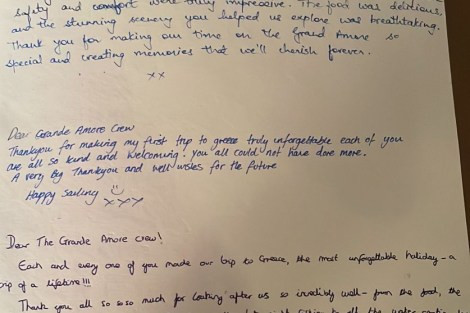 safety and comfort were truly impressive. The food was delicious,
and the stunning scenery you helped us explore was breathtaking.
Thank you for making our time on the Grand Amore so
special and creating memories that we'll cherish forever.
xx
Dear Grande Amore Crew
Thankyou for making my first trip to greece truly unforgettable each of you
are all so kind and welcoming. You all could not have done more.
A very Big Thankyou and well wishes for the future
Happy Sailing ☺
xxx
Dear The Grande Amore crew!
Each and every one of you made our trip to Greece, the most unforgettable holiday - a
trip of a lifetime!!!
Thank you all so soso much for looking after us so incredibly well - from the food, the
to all the water